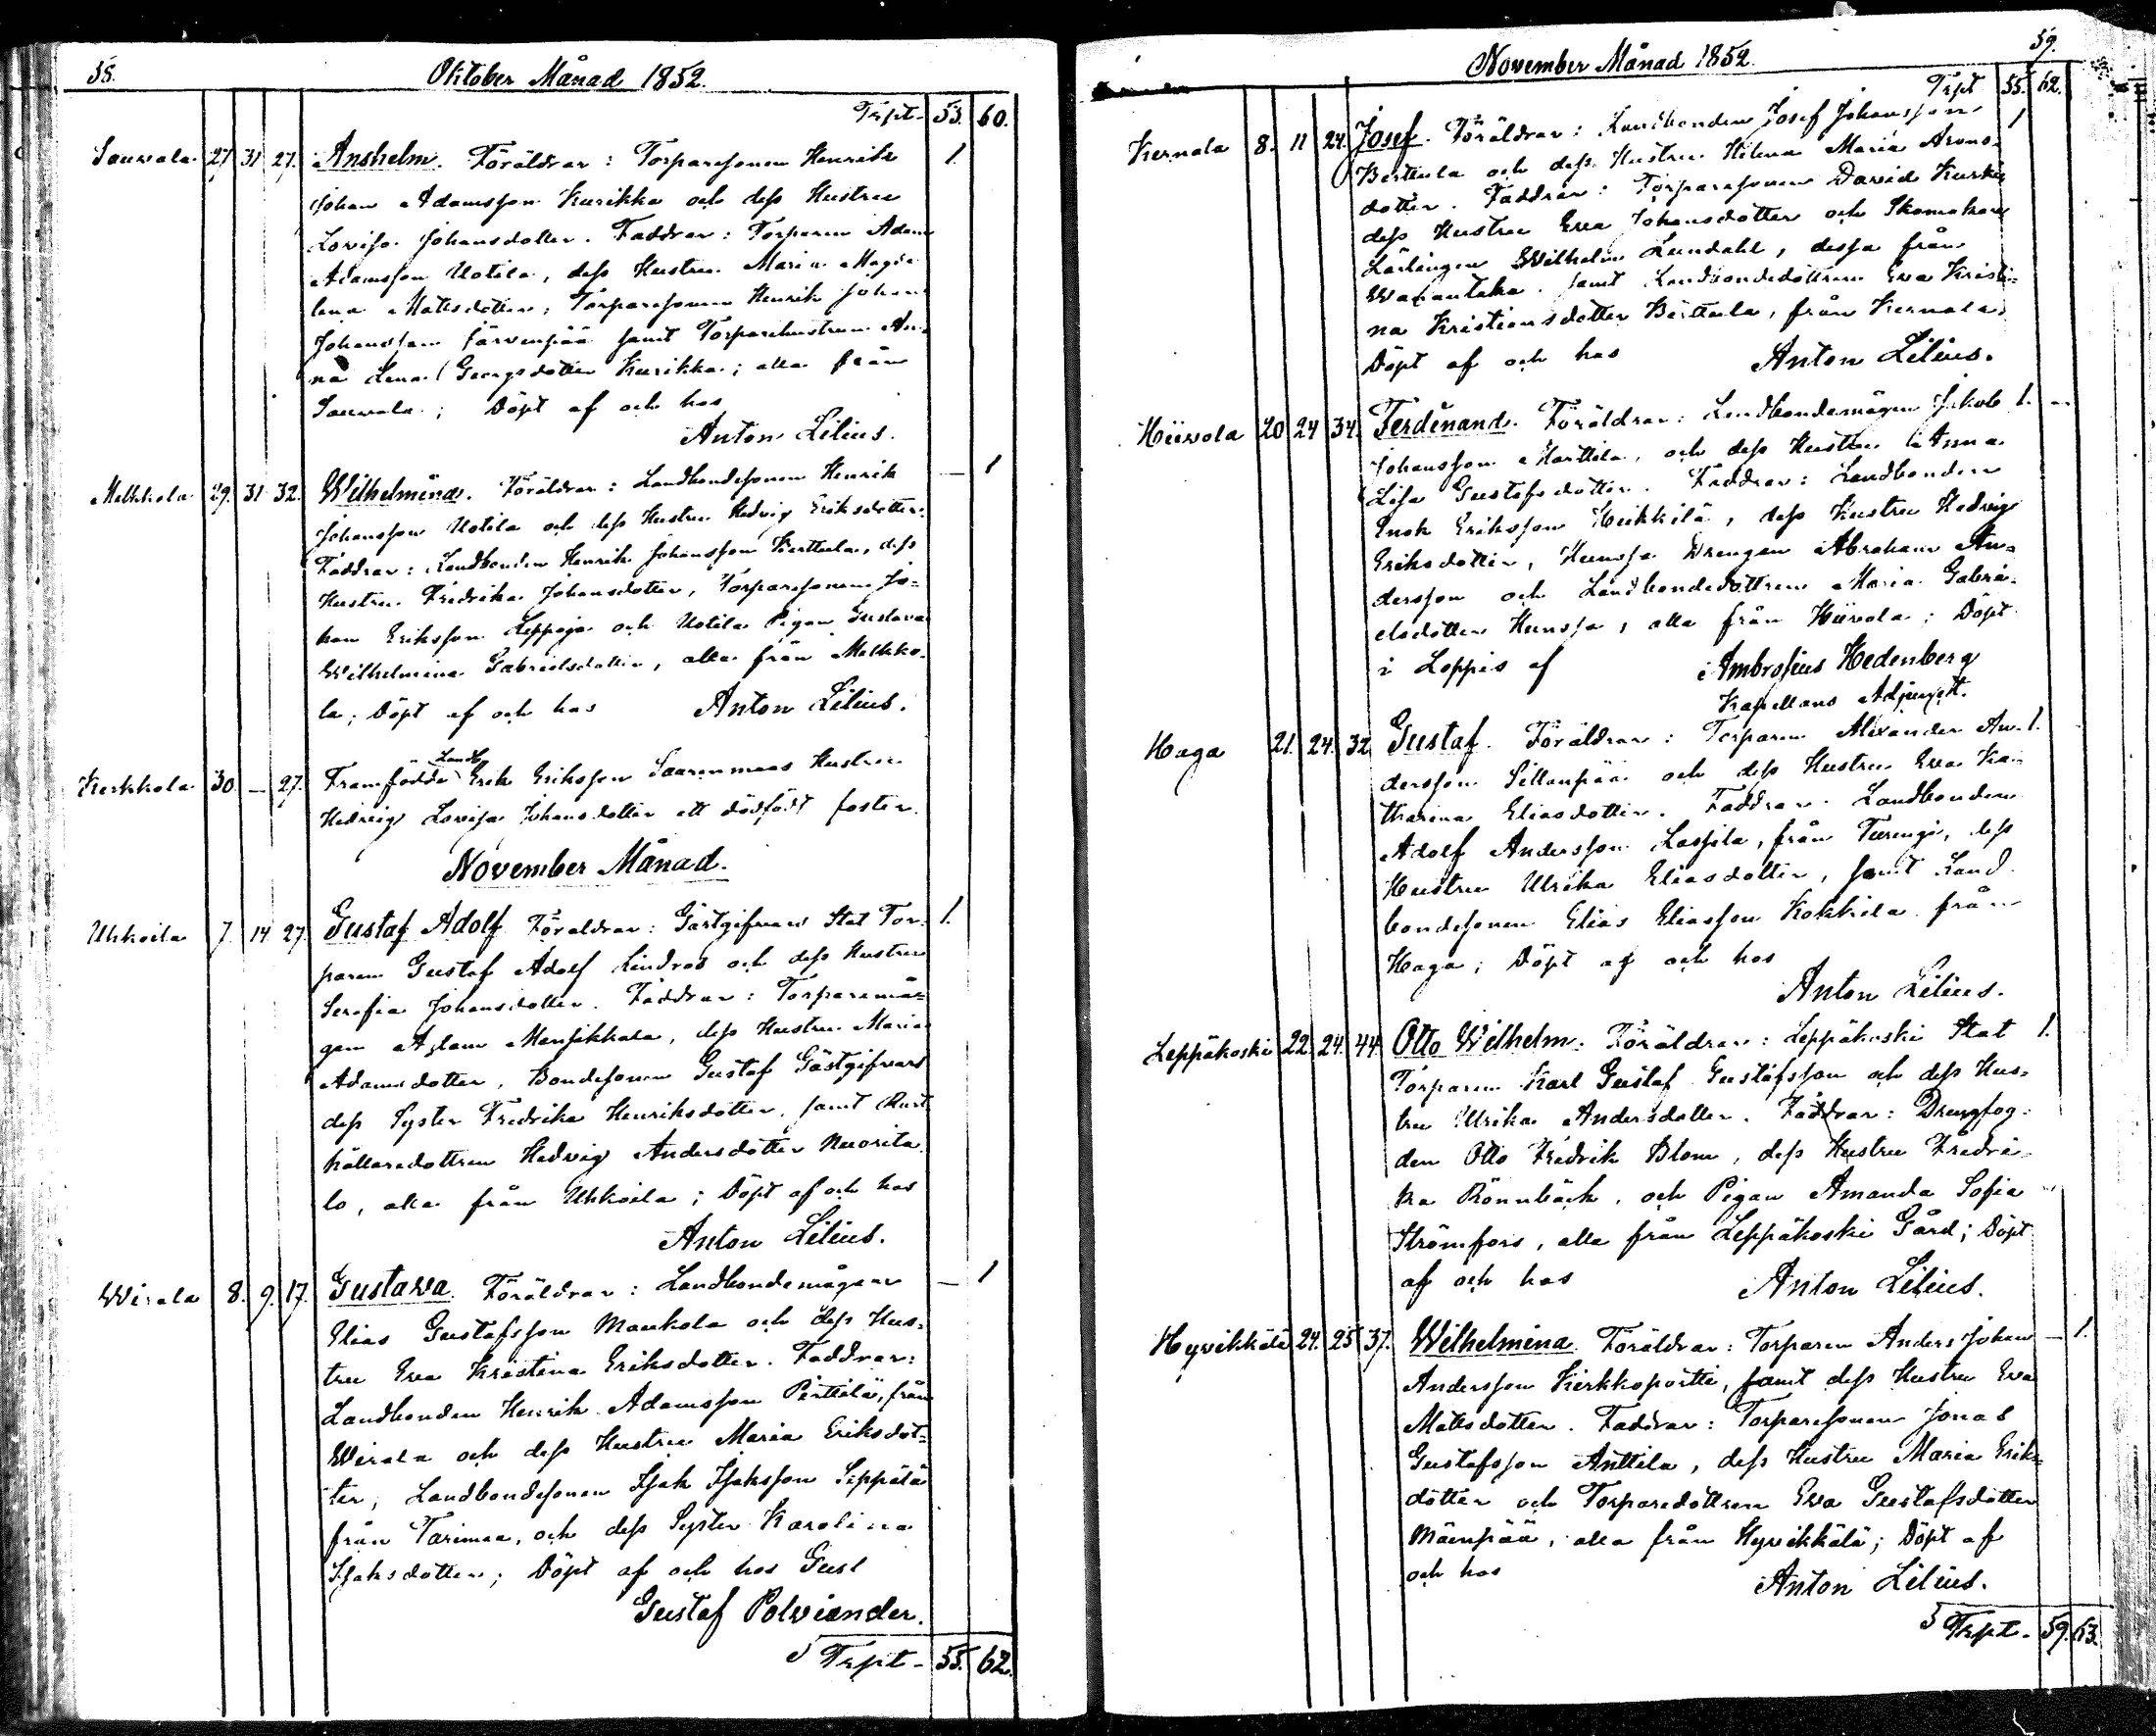 58.
Oktober Månad 1852.
Trpt. 53. 60.
Sauvala 27 31 27. Anshelm. Föräldrar: Torparesonen Henrik 1.
Johan Adamsson Kurikka och dess Hustru
Lovisa Johansdotter. Faddrar: Torparen Adam
Adamsson Uotila, dess Hustru Maria Magda
lena Mattsdotter, Torparesonen Henrik Johan
Johansson Järvenpää samt Torparehustrun An-
na Lena Georgsdotter Kurikka; alla från
Sauvala; Döpt af och hos
Anton Lilius.
Melkkola 29. 31 32. Wilhelmina. Föräldrar: Landbondesonen Henrik — 1
Johansson Uotila och dess Hustru Hedvig Eriksdotter.
Faddrar: Landbonden Henrik Johansson Kerttula, dess
Hustru Fredrika Johansdotter, Torparesonen Jo-
han Eriksson Leppoja och Uotila Pigan Gustava
Wilhelmina Gabrielsdotter, alla från Melkko-
la; Döpt af och hos Anton Lilius.
Kerkkola 30. — 27. Framfödde Landb. Erik Eriksson Saarenmaas Hustru
Hedvig Lovisa Johansdotter ett dödfödt foster.
November Månad.
Uhkoila 7. 14 27. Gustaf Adolf Föräldrar: Gästgifvars Stat Tor- 1.
paren Gustaf Adolf Lindros och dess Hustru
Serafia Johansdotter. Faddrar: Torparemå-
gen Adam Mansikkala, dess Hustru Maria
Adamsdotter, Bondesonen Gustaf Gästgifvars
dess Syster Fredrika Henriksdotter, samt Rust
hållaredottren Hedvig Andersdotter Nuorita
lo, alla från Uhkoila; Döpt af och hos
Anton Lilius.
Wirala 8. 9. 17. Gustava. Föräldrar: Landbondemågen — 1
Elias Gustafsson Maukola och dess Hus-
tru Eva Kristina Eriksdotter. Faddrar:
Landbonden Henrik Adamsson Perttilä, från
Wirala och dess Hustru Maria Eriksdot-
ter, Landbondesonen Isak Isaksson Seppälä
från Tarimaa, och dess Syster Karolina
Isaksdotter; Döpt af och hos Gust
Gustaf Polviander.
Trpt. 55. 62.
59.
November Månad 1852.
Trpt 55. 62.
Kernala 8. 11 24. Josef. Föräldrar: Landbonden Josef Johansson 1
Berttula och dess Hustru Helena Maria Arons-
dotter. Faddrar: Torparesonen David Kurki
dess Hustru Eva Johansdotter och Skomakare
Lärlingen Wilhelm Lundahl, dessa från
Wanantaka samt Landbondedottren Eva Kristi-
na Kristiansdotter Berttula, från Kernala.
Döpt af och hos Anton Lilius.
Hiivola 20 24 34. Ferdinand. Föräldrar: Landbondemågen Jakob 1. —
Johansson Marttila, och dess Hustru Anna
Lisa Gustafsdotter. Faddrar: Landbonden
Enok Eriksson Heikkilä, dess Hustru Hedvig
Eriksdotter, Hunsa Drengen Abraham An-
dersson och Landbondedottren Maria Gabri-
elsdotter Hunsa, alla från Hiivola; Döpt
i Loppis af Ambrosius Hedenberg
Kapellans Adjungt.
Haga 21. 24. 32 Gustaf. Föräldrar: Torparen Alexander An- 1.
dersson Sillanpää och dess Hustru Eva Ka-
tharina Eliasdotter. Faddrar. Landbonden
Adolf Andersson Laspila, från Turengi, dess
Hustru Ulrika Eliasdotter, samt Land
bondesonen Elias Eliasson Kokkila från
Haga; Döpt af och hos
Anton Lilius.
Leppäkoski 22. 24. 44. Otto Wilhelm. Föräldrar: Leppäkoski Stat 1.
Torparen Karl Gustaf Gustafsson och dess Hus-
tru Ulrika Andersdotter. Faddrar: Drengfog-
den Otto Fredrik Blom, dess Hustru Fredri-
ka Rönnbäck, och Pigan Amanda Sofia
Strömfors, alla från Leppäkoski Gård; Döpt
af och hos Anton Lilius.
Hyvikkälä 24. 25 37. Wilhelmina. Föräldrar: Torparen Anders Johan — 1.
Andersson Kirkkoportti, samt dess Hustru Eva
Mattsdotter. Faddrar: Torparesonen Jonas
Gustafsson Anttila, dess Hustru Maria Eriks-
dotter och Torparedottren Eva Gustafsdotter
Mäenpää, alla från Hyvikkälä; Döpt af
och hos Anton Lilius.
Trpt. 59. 63.